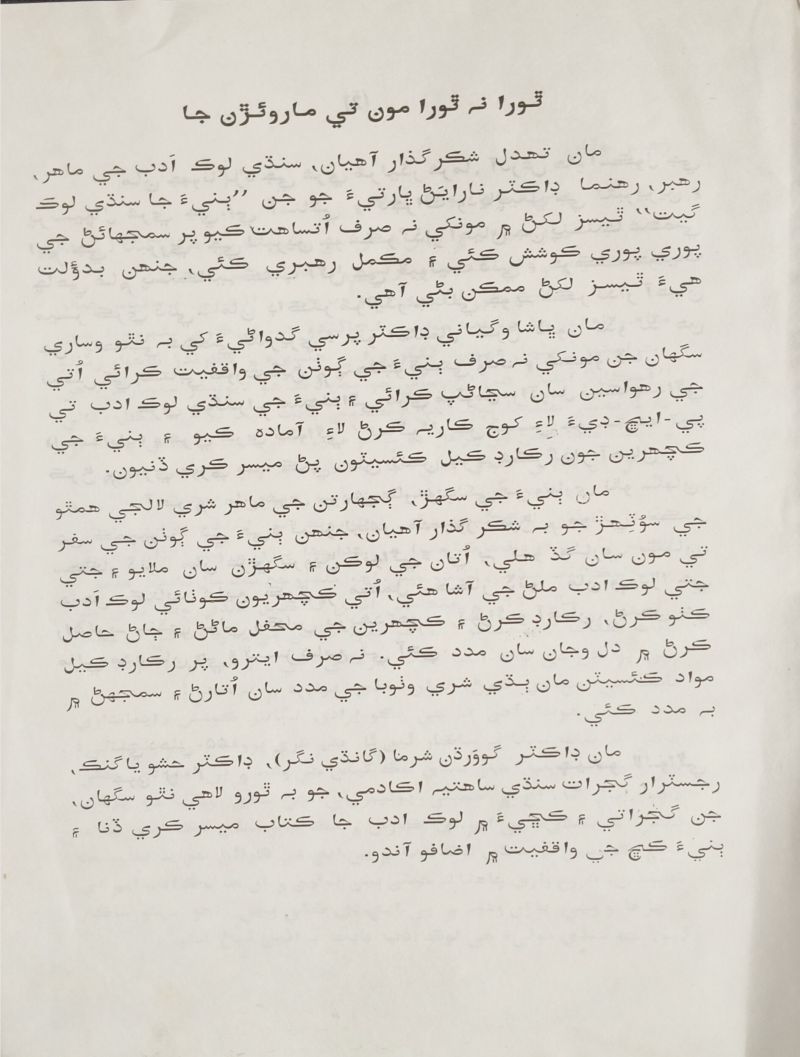 ٿورا نہ ٿورا مون تي ماروئڙن جا
مان تهدل شڪرگذار آهيان، سنڌي لوڪ اَدب جي ماهر،
رهبر، رهنما ڊاڪٽر نارايڻ ڀارتيءَ جو جن ”ٻنيءَ جا سنڌي لوڪ
گيت“ ٿيسز لکڻ ۾ مونکي نہ صرف اُتساهت ڪيو پر سمجهائڻ جي
پوري پوري ڪوشش ڪئي ۽ مڪمل رهبري ڪئي، جنهن بدؤلت
هيءَ ٿيسز لکڻ ممڪن بڻي آهي.
مان ڀاشا وگياني ڊاڪٽر پرسي گدواڻيءَ کي بہ نٿو وساري
سگهان جن مونکي نہ صرف ٻنيءَ جي ڳوٺن جي واقفيت ڪرائي اُتي
جي رهواسين سان سڃاڻپ ڪرائي ۽ ٻنيءَ جي سنڌي لوڪ ادب تي
پي-ايڇ-ڊيءَ لاءِ کوج ڪاريہ ڪرڻ لاءِ آماده ڪيو ۽ ٻنيءَ جي
ڪچهرين جون رڪارڊ ڪيل ڪئسيٽون پڻ ميسر ڪري ڏنيون.
مان ٻنيءَ جي سگهڙ، ڳجهارتن جي ماهر شري لالجي همٿو
جي سؤٽهڙ جو بہ شڪر گذار آهيان، جنهن ٻنيءَ جي ڳوٺن جي سفر
تي مون سان گڏ هلي، اُتان جي لوڪن ۽ سگهڙن سان ملايو ۽ جتي
جتي لوڪ ادب ملڻ جي آشا هئي، اُتي ڪچهريون ڪوٺائي لوڪ اَدب
ڪٺو ڪرڻ، رڪارڊ ڪرڻ ۽ ڪچهرين جي محفل ماڻڻ ۽ ڄاڻ حاصل
ڪرڻ ۾ دل وجان سان مدد ڪئي. نہ صرف ايترو، پر رڪارڊ ڪيل
مواد ڪئسيٽن مان ٻڌي شري ونوبا جي مدد سان اُتارڻ ۽ سمجهڻ ۾
بہ مدد ڪئي.
مان ڊاڪٽر گووَرڌن شرما (گانڌي نگر)، ڊاڪٽر حشو ياگنڪ،
رجسٽرار گجرات سنڌي ساهتيہ اڪادمي، جو بہ ٿورو لاهي نٿو سگهان،
جن گجراتي ۽ ڪڇيءَ ۾ لوڪ ادب جا ڪتاب ميسر ڪري ڏنا ۽
ٻنيءَ ڪڇ جي واقفيت ۾ اضافو آندو.